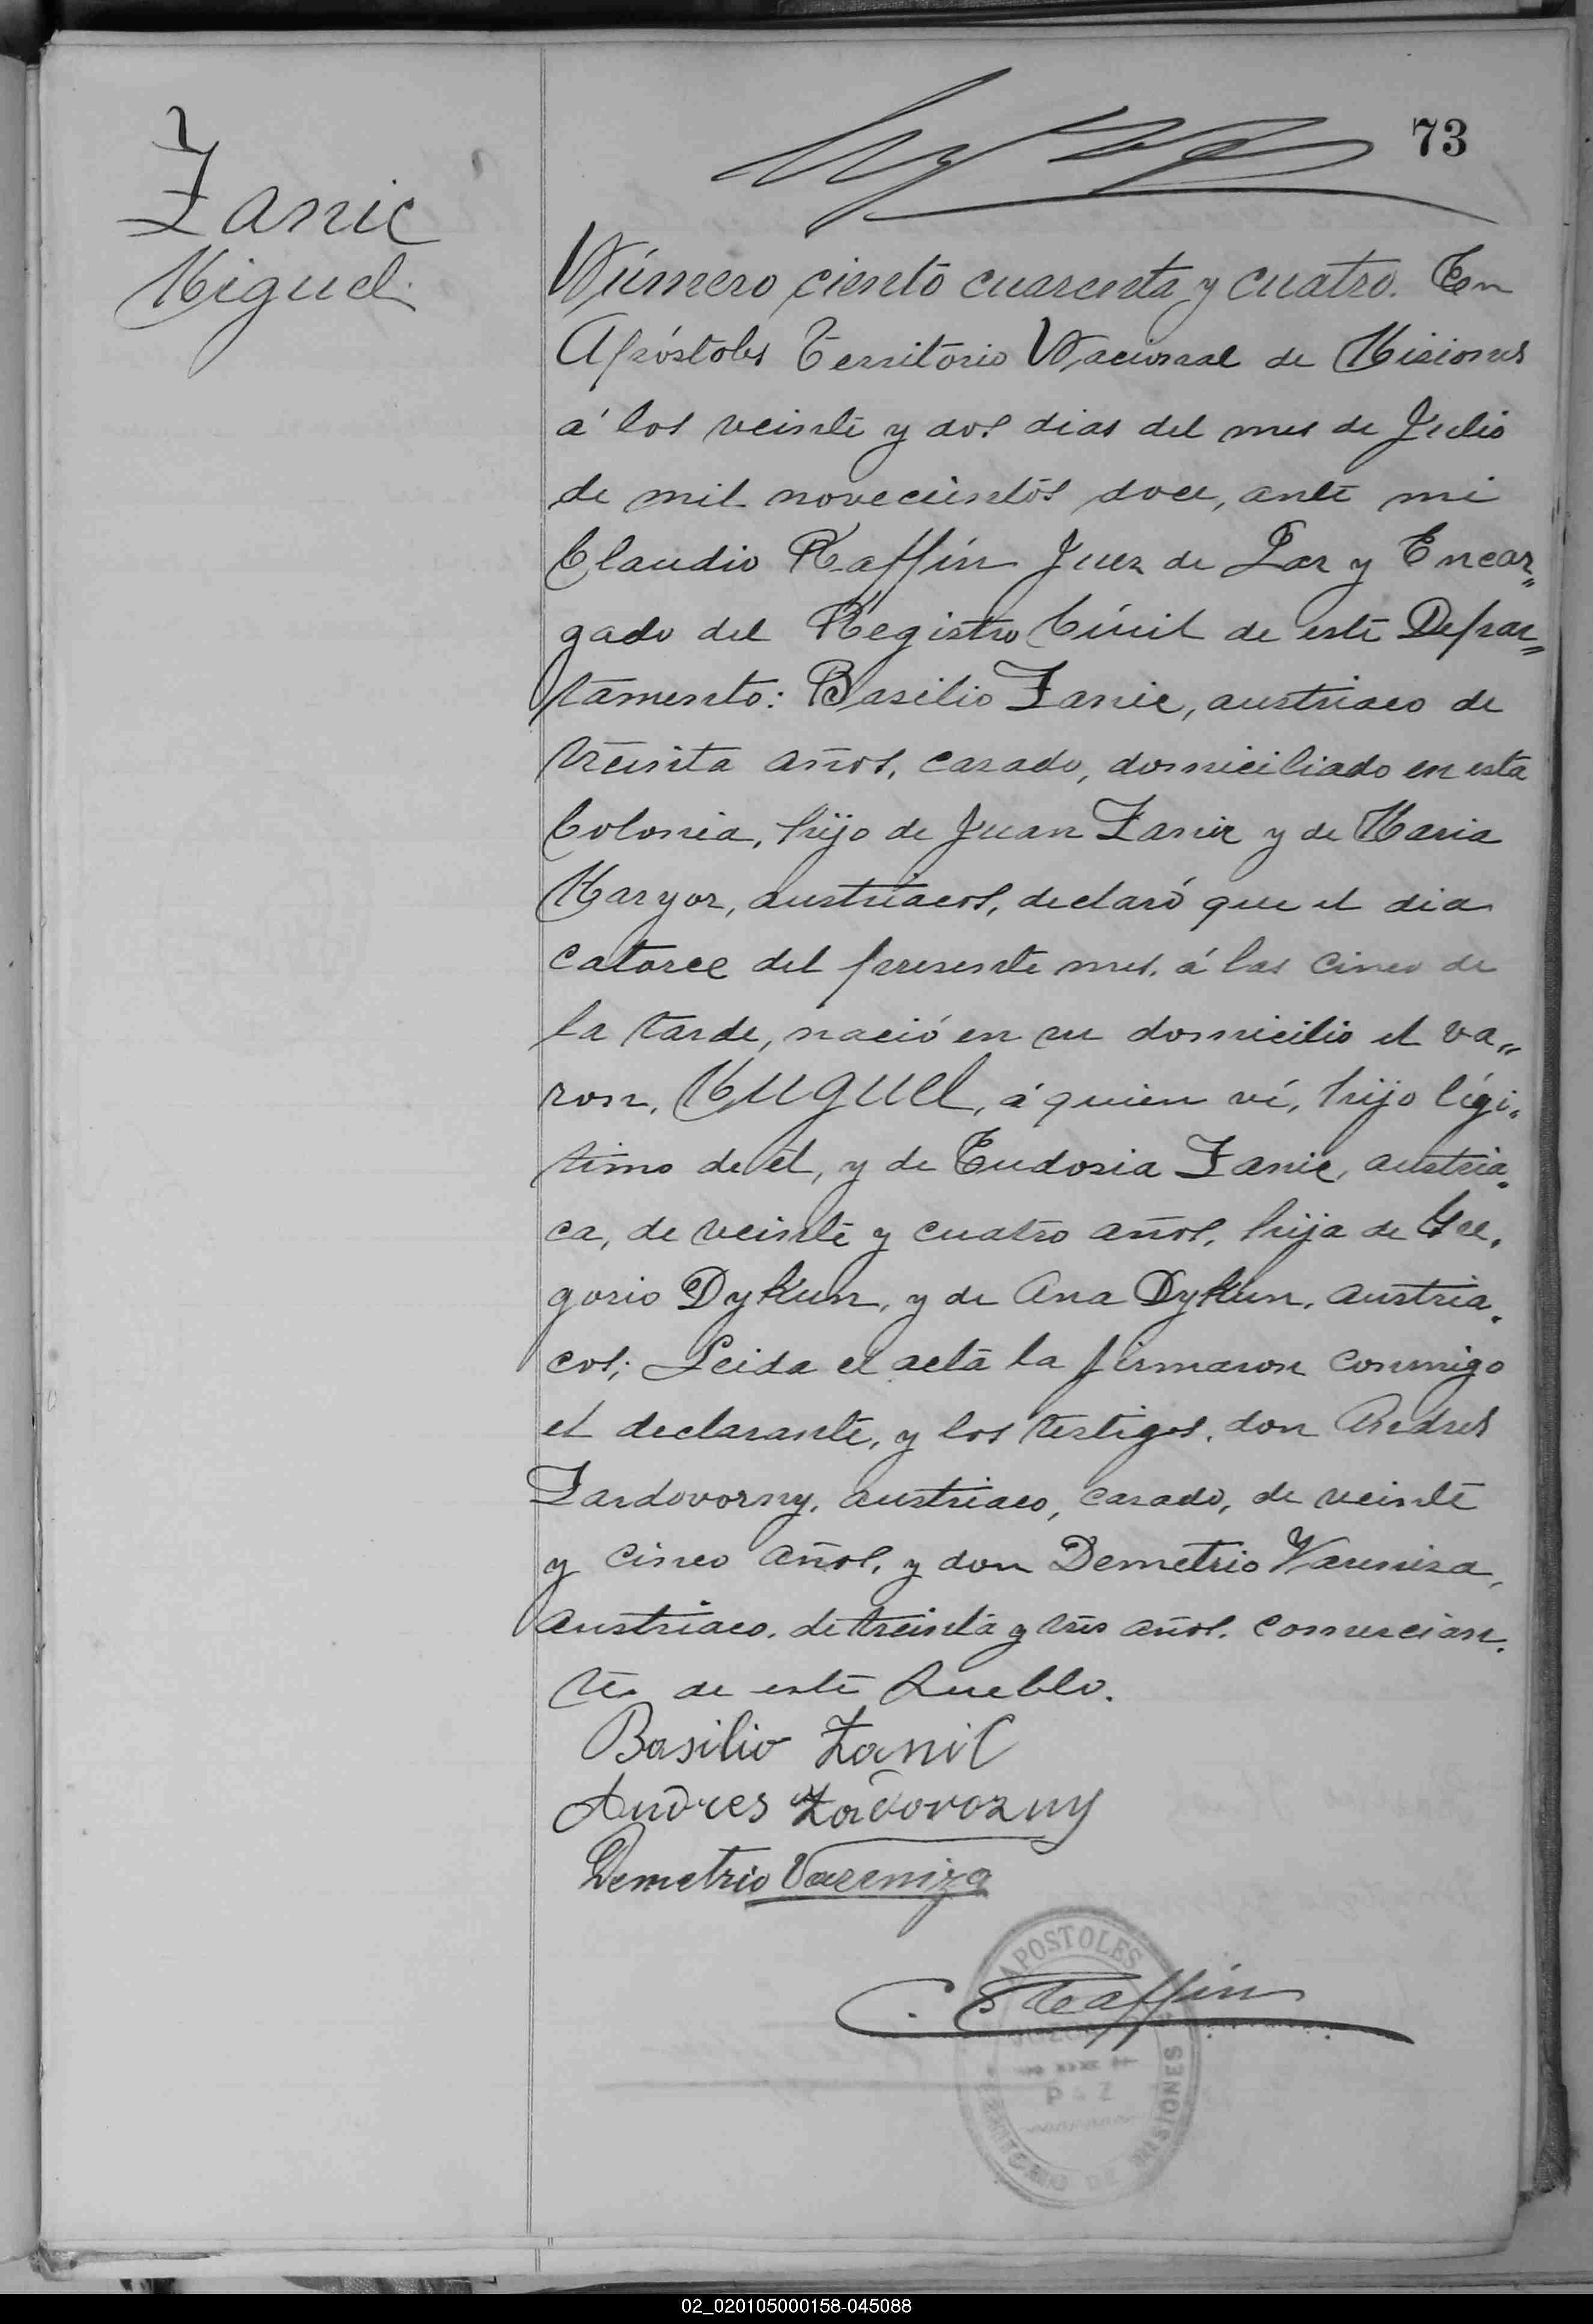 73
Zanic
Miguel.
Número ciento cuarenta y cuatro. En
Apóstoles Territorio Nacional de Misiones
á los veinte y dos dias del mes de Julio
de mil novecientos doce, ante mi
Claudio Raffin Juez de Paz y Encar=
gado del Registro Civil de este Depar=
tamento: Basilio Zanic, austriaco de
treinta años, casado, domiciliado en esta
Colonia, hijo de Juan Zanic y de Maria
Maryor, austríacos, declaró que el dia
catorce del presente mes, á las cinco de
la tarde, nació en su domicilio el va=
ron, Miguel, á quien ví, hijo légi=
timo de él, y de Eudosia Zanic, austria=
ca, de veinte y cuatro años, hija de Gre=
gorio Dykun, y de Ana Dykun, austria=
cos; Leida el acta la firmaron conmigo
el declarante, y los testigos, don Andres
Zardovorny, austriaco, casado, de veinte
y cinco años, y don Demetrio Vareniza,
austriaco, de treinta y tres años, comercian=
te de este Pueblo.
Basilio Zanic
Andres Zadorozny
Demetrio Vareniza
C. Raffin
APOSTOLES
JUZGADO
DE
PAZ
TERRITORIO DE MISIONES
02_020105000158-045088